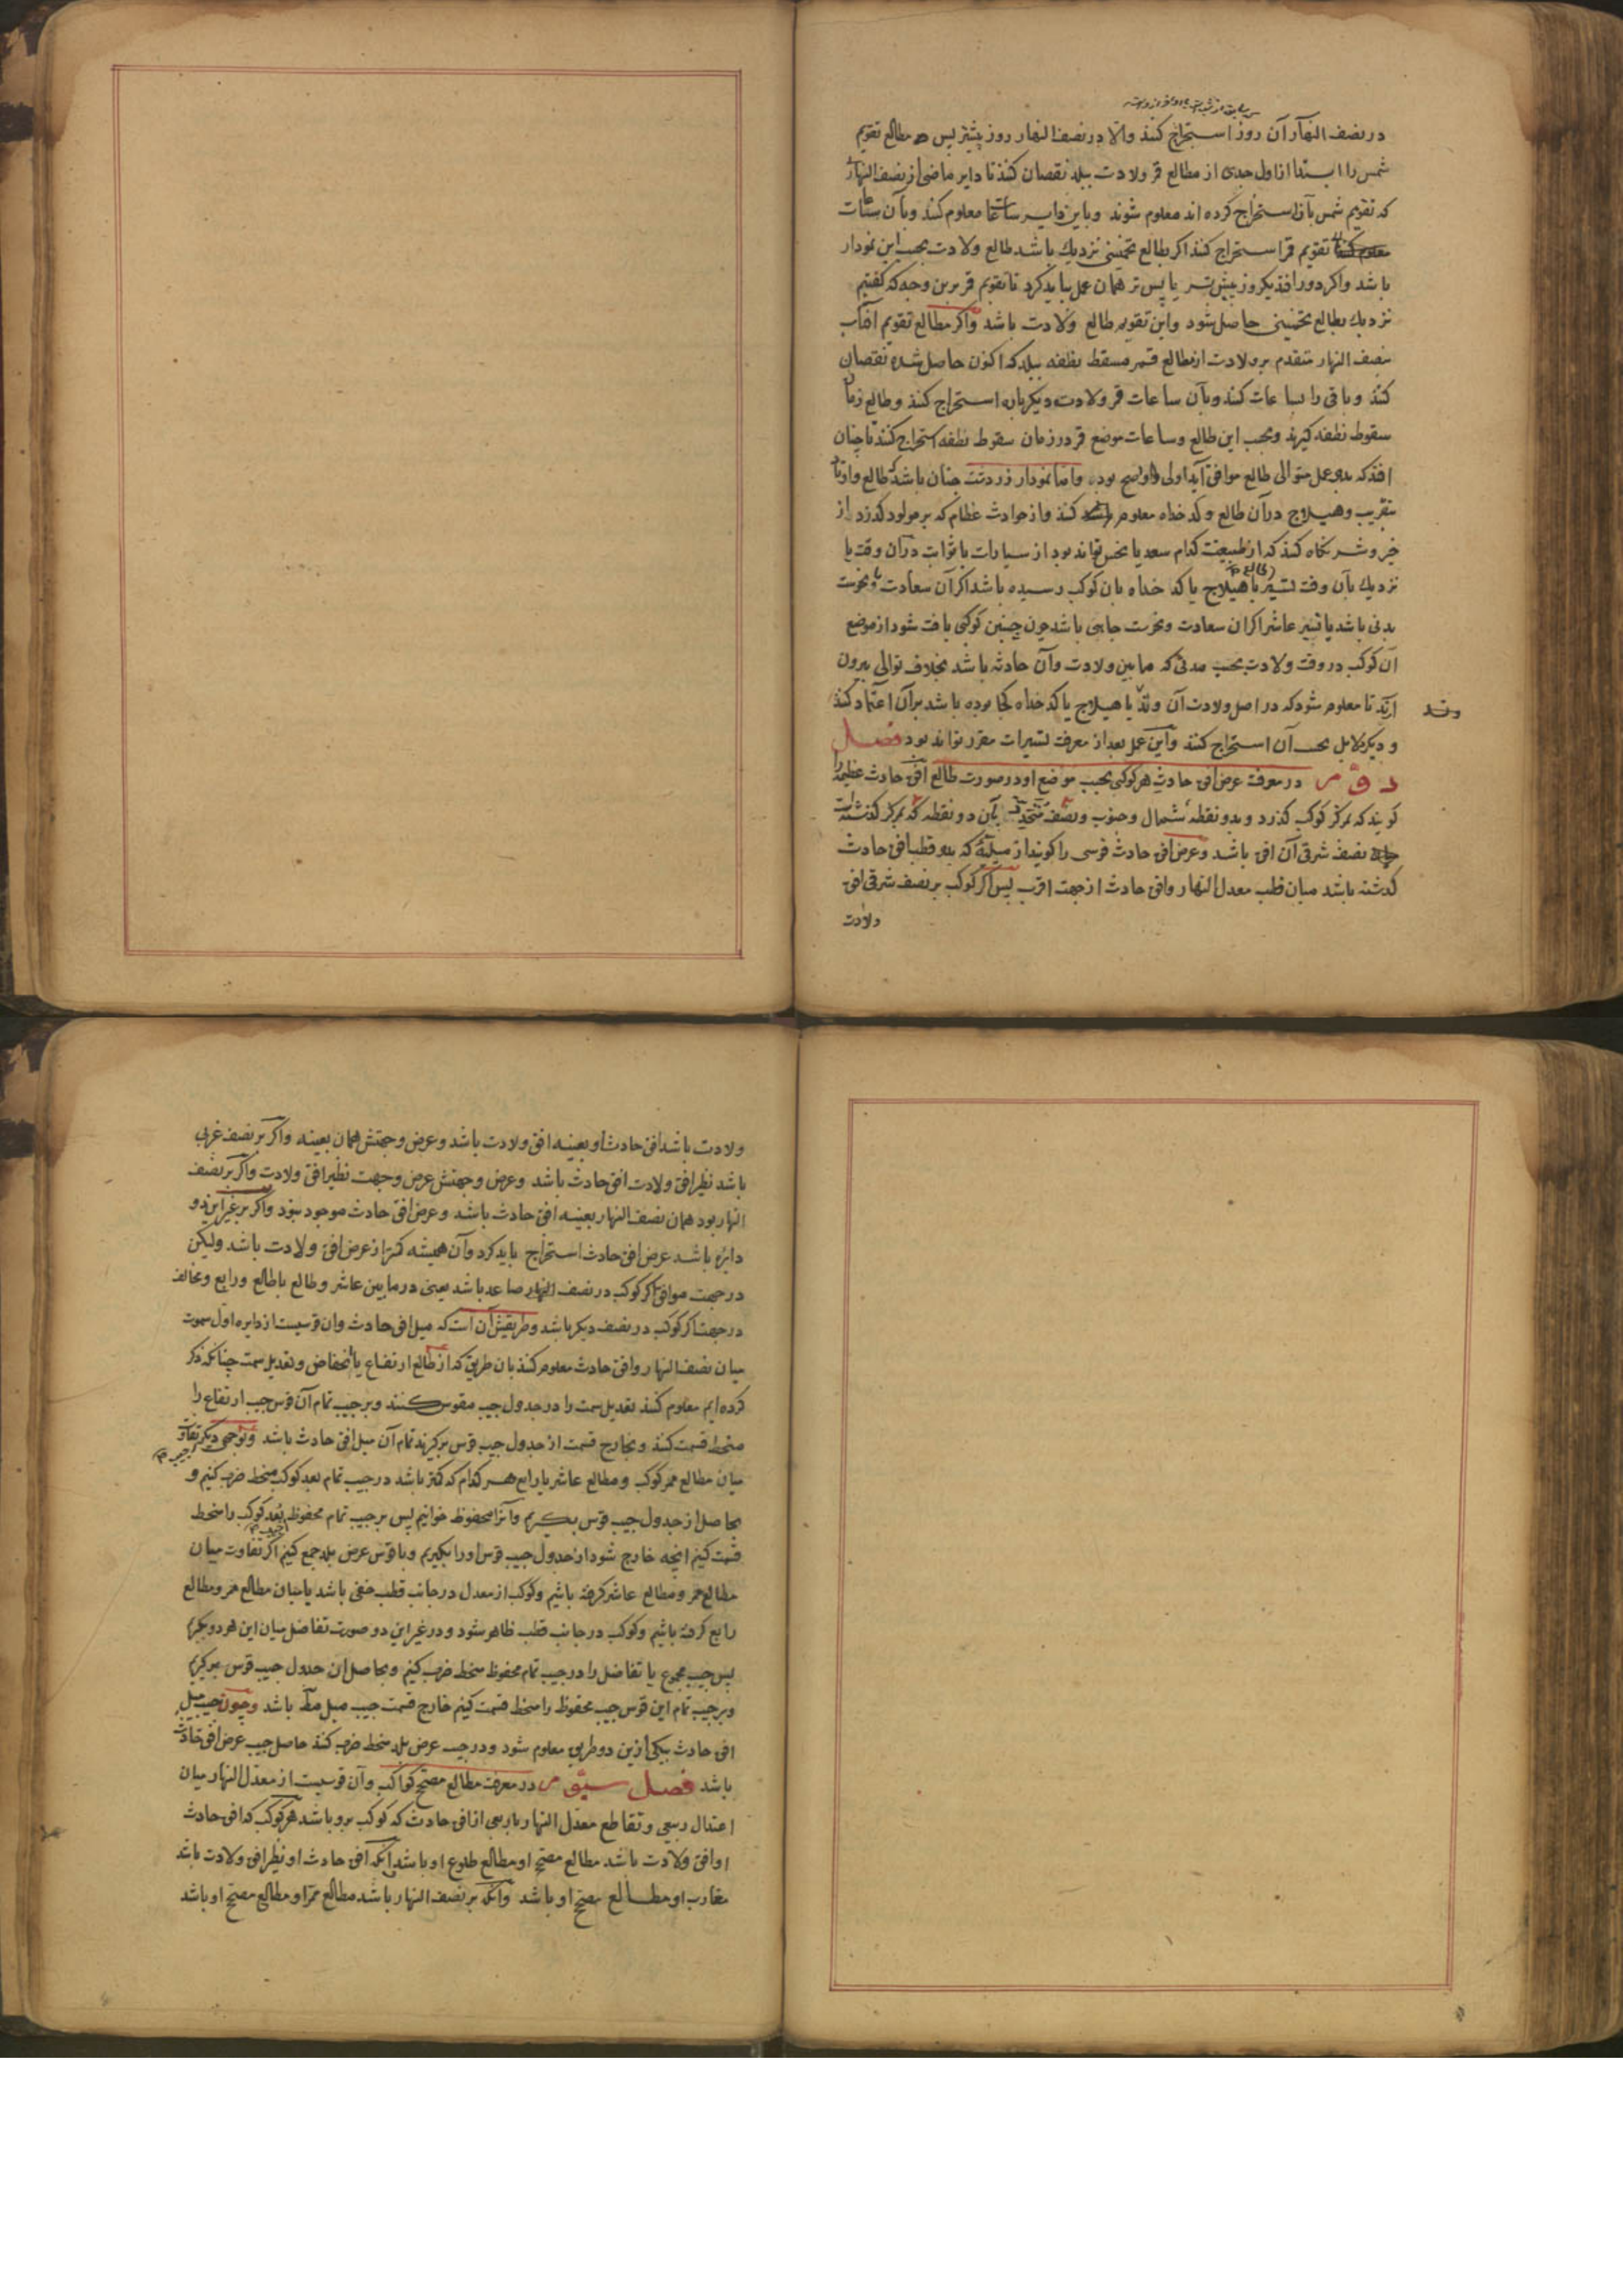 در نصف النهار آن روز استخراج کنند والا در نصف النهار روز پیشتر پس مطالع تقویم
شمس را ابتدا از اول جدی از مطالع قمر ولادت ببلد نقصان کنند تا دایر ماضی از نصف النهار
که تقویم شمس بآن استخراج کرده اند معلوم شود وباین دایر ساعات معلوم کنند وبآن ساعات
تقویم قمر استخراج کنند اکر بطالع تخمینی نزدیك باشد طالع ولادت بحسب این نمودار
باشد واکر دور افتد یکروز پیش تر یا پس تر همان عمل باید کرد تا تقویم قمر برین وجه که کفتیم
نزدیك بطالع تخمینی حاصل شود واین تقویم طالع ولادت باشد واکر مطالع تقویم افتاب
بنصف النهار متقدم بر ولادت از مطالع قمر مسقط نطفه ببلد که اکنون حاصل شده نقصان
کنند وباقی را ساعات کنند وبآن ساعات قمر ولادت دیکرباره استخراج کنند وطالع زمان
سقوط نطفه کیرند وبحسب این طالع وساعات موضع قمر در زمان سقوط نطفه استخراج کنند تا چنان
افتد که بدو عمل متوالی طالع موافق آید اولی واصح بود واما نمودار زردشت چنان باشد که طالع واوتاد
بتقریب وهیلاج در آن طالع وکدخداه معلوم کنند واز حوادث عظام که بر مولود کذرد از
خیر وشر نکاه کنند که از طبیعت کدام سعد یا نحس تواند بود از سیارات یا ثوابت در آن وقت یا
نزدیك بآن وقت تسییر یا هیلاج یا کدخداه بان کوکب رسیده باشد اکر آن سعادت ونحوست
بدنی باشد یا تسییر عاشر اکر ان سعادت ونحوست جاهی باشد چون چنین کوکبی یافت شود از موضع
آن کوکب در وقت ولادت بحسب مدتی که ما بین ولادت وآن حادثه باشد بخلاف توالی بیرون
آرند تا معلوم شود که در اصل ولادت آن وتد یا هیلاج یا کدخداه کجا بوده باشد بر آن اعتماد کنند
وتد
و دیکر دلایل بحسب آن استخراج کنند واین عمل بعد از معرفت تسییرات مقرر تواند بود فصل
در معرفت عرض افق حادث هر کوکبی بحسب موضع او در صورت طالع افق حادث عظیمه را
کویند که بمرکز کوکب کذرد وبدو نقطه شمال وجنوب ونصف بآن دو نقطه که بمرکز کذشته
نصف شرقی آن افق باشد وعرض افق حادث قوسی را کویند از میلیه که بدو قطب افق حادث
کذشته باشد میان قطب معدل النهار وافق حادث از جهت اقرب پس اکر کوکب بر نصف شرقی افق
ولادت
ولادت باشد افق حادث او بعینه افق ولادت باشد وعرض وجهتش همان بعینه واکر بر نصف غربی
باشد نظیر افق ولادت افق حادث باشد وعرض وجهتش عرض وجهت نظیر افق ولادت واکر بر نصف
النهار بود همان نصف النهار بعینه افق حادث باشد وعرض افق حادث موجود نبود واکر بر غیر این دو
دایره باشد عرض افق حادث استخراج باید کرد وآن همیشه کمتر از عرض افق ولادت باشد ولیکن
در جهت موافق اکر کوکب در نصف النهار صاعد باشد یعنی در مابین عاشر وطالع یا طالع ورابع ومخالف
در جهت اکر کوکب در نصف دیکر باشد وطریقش آن است که میل افق حادث وان قوسیست از دایره اول سموت
میان نصف النهار وافق حادث معلوم کنند بان طریق که از طالع ارتفاع یا انخفاض وتعدیل سمت چنانکه ذکر
کرده ایم معلوم کنند تعدیل سمت را در جدول جیب مقوس کنند وبر جیب تمام آن قوس جیب ارتفاع را
منحط قسمت کنند وبخارج قسمت از جدول جیب قوس برکیرند تمام آن میل افق حادث باشد وبوجهی دیکر تفاوت
میان مطالع ممر کوکب ومطالع عاشر یا رابع هر کدام که کمتر باشد در جیب تمام بعد کوکب منحط ضرب کنیم و
بحاصل از جدول جیب قوس بکیریم وآنرا محفوظ خوانیم پس بر جیب تمام محفوظ بعد کوکب را منحط
قسمت کنیم انچه خارج شود از جدول جیب قوس اورا بکیریم وبا قوس عرض بلد جمع کنیم اکر تفاوت میان
مطالع ممر ومطالع عاشر کرفته باشیم وکوکب از معدل در جانب قطب خفی باشد یا میان مطالع ممر ومطالع
رابع کرفته باشیم وکوکب در جانب قطب ظاهر شود ودر غیر این دو صورت تفاضل میان این هر دو بکیریم
پس جیب مجموع یا تفاضل را در جیب تمام محفوظ منحط ضرب کنیم وبحاصل از جدول جیب قوس برکیریم
وبر جیب تمام این قوس جیب محفوظ را منحط قسمت کنیم خارج قسمت جیب میل مط باشد وچون جیب میل
افق حادث بیکی ازین دو طریق معلوم شود ودر جیب عرض بلد منحط ضرب کنند حاصل جیب عرض افق حادث
باشد فصل در معرفت مطالع مصحح کواکب وآن قوسیست از معدل النهار میان
اعتدال ربیعی وتقاطع معدل النهار با ربعی از افق حادث که کوکب برو باشد هر کوکب که افق حادث
او افق ولادت باشد مطالع مصحح او مطالع طلوع او باشد وآنکه افق حادث او نظیر افق ولادت باشد
مغارب او مطالع مصحح او باشد وآنکه بر نصف النهار باشد مطالع ممر او مطالع مصحح او باشد